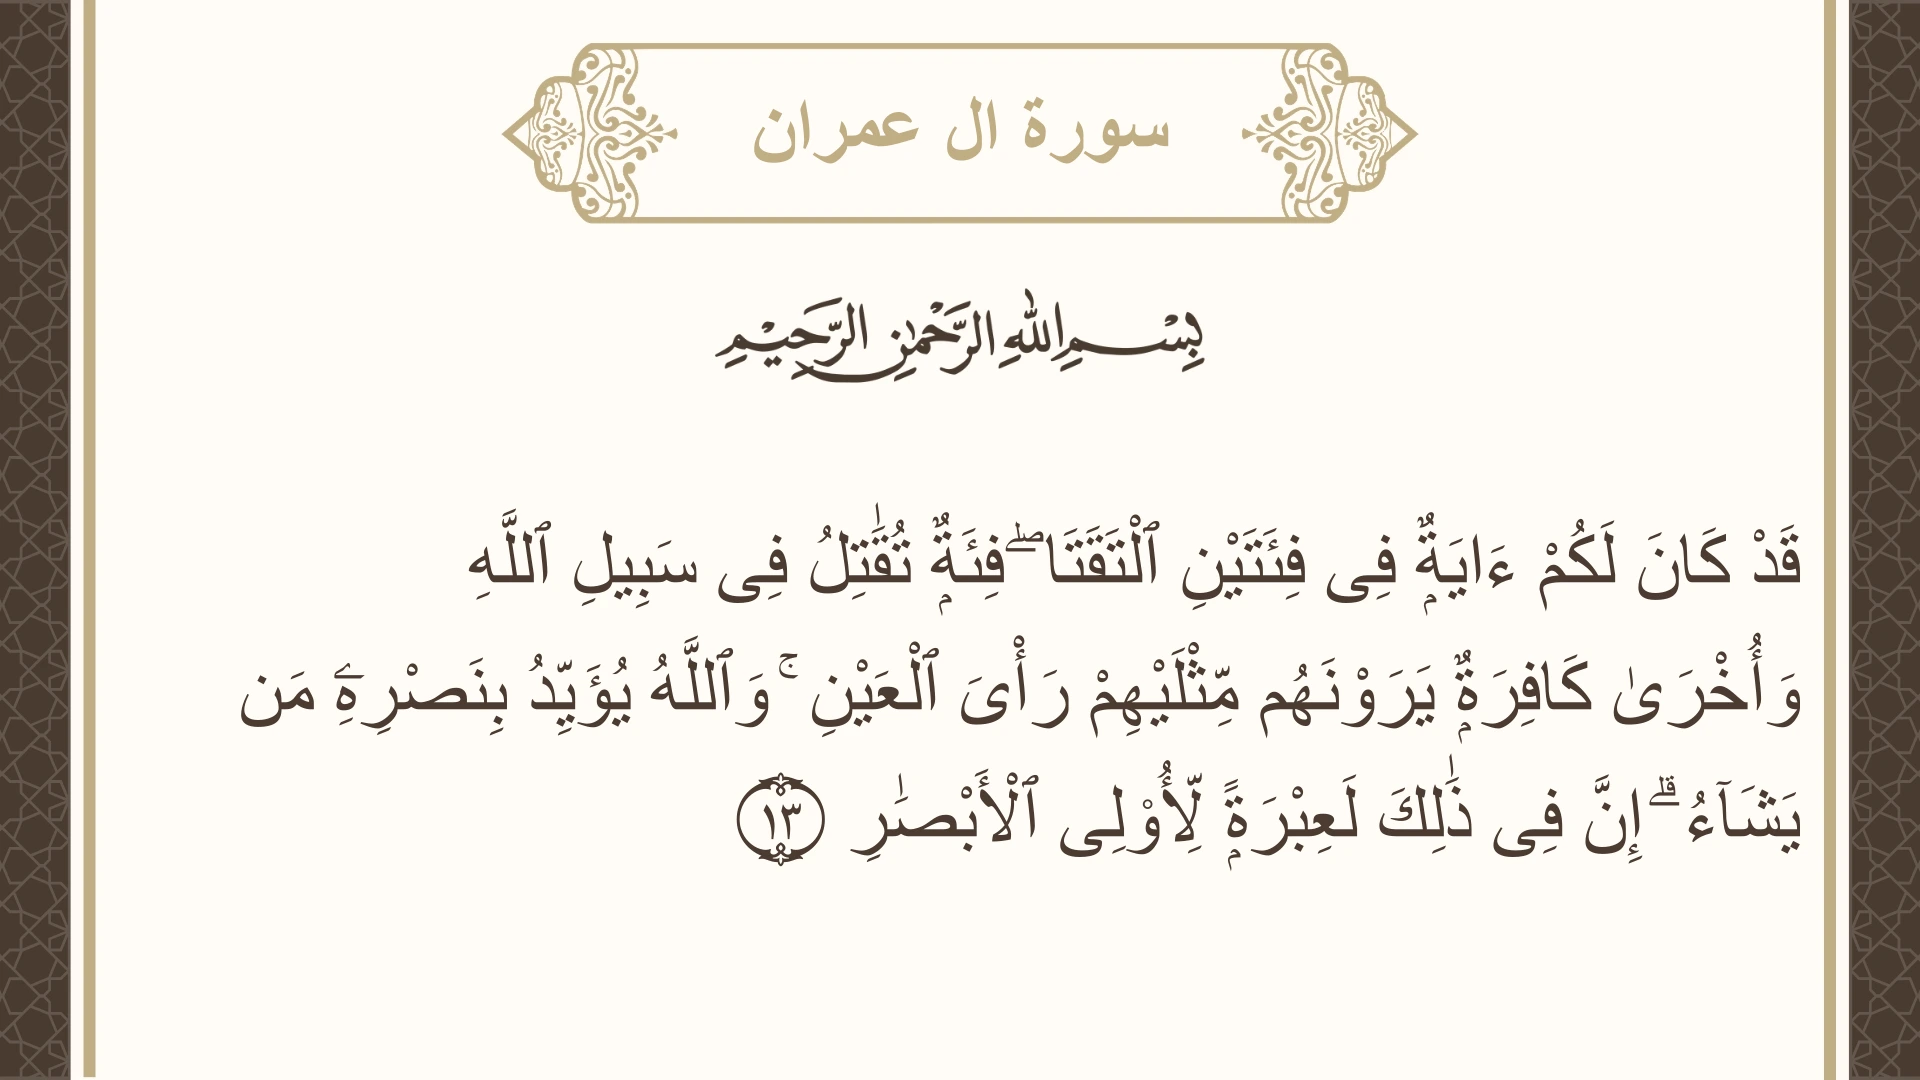 سورة ال عمران
بِسْمِ اللهِ الرَّحْمٰنِ الرَّحِيْمِ
قَدْ كَانَ لَكُمْ ءَايَةٌۭ فِى فِئَتَيْنِ ٱلْتَقَتَا ۖ فِئَةٌۭ تُقَٰتِلُ فِى سَبِيلِ ٱللَّهِ
وَأُخْرَىٰ كَافِرَةٌۭ يَرَوْنَهُم مِّثْلَيْهِمْ رَأْىَ ٱلْعَيْنِ ۚ وَٱللَّهُ يُؤَيِّدُ بِنَصْرِهِۦ مَن
يَشَآءُ ۗ إِنَّ فِى ذَٰلِكَ لَعِبْرَةًۭ لِّأُو۟لِى ٱلْأَبْصَٰرِ ١٣